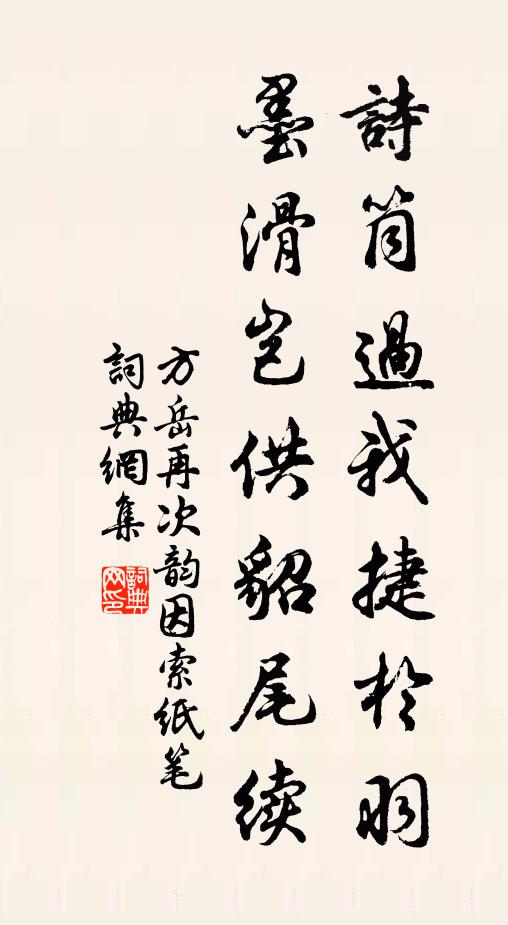 詩筒過我捷於羽
墨滑豈供貂尾续
方岳再次韵因索纸笔
詞典網集
詞典网印